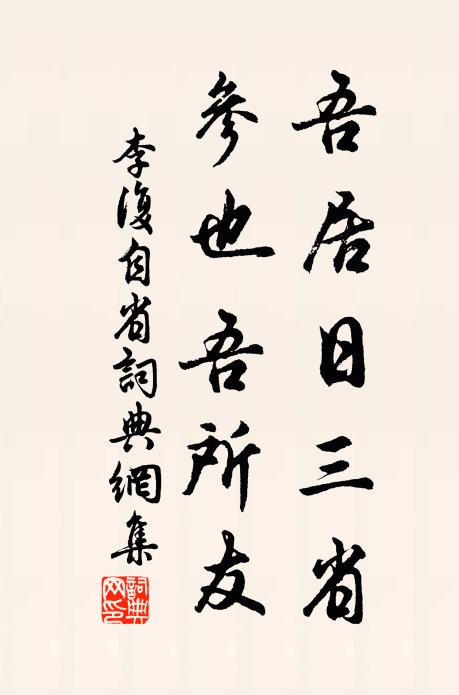 吾居日三省
參也吾所友
李復自省詞典網集
詞典
网印